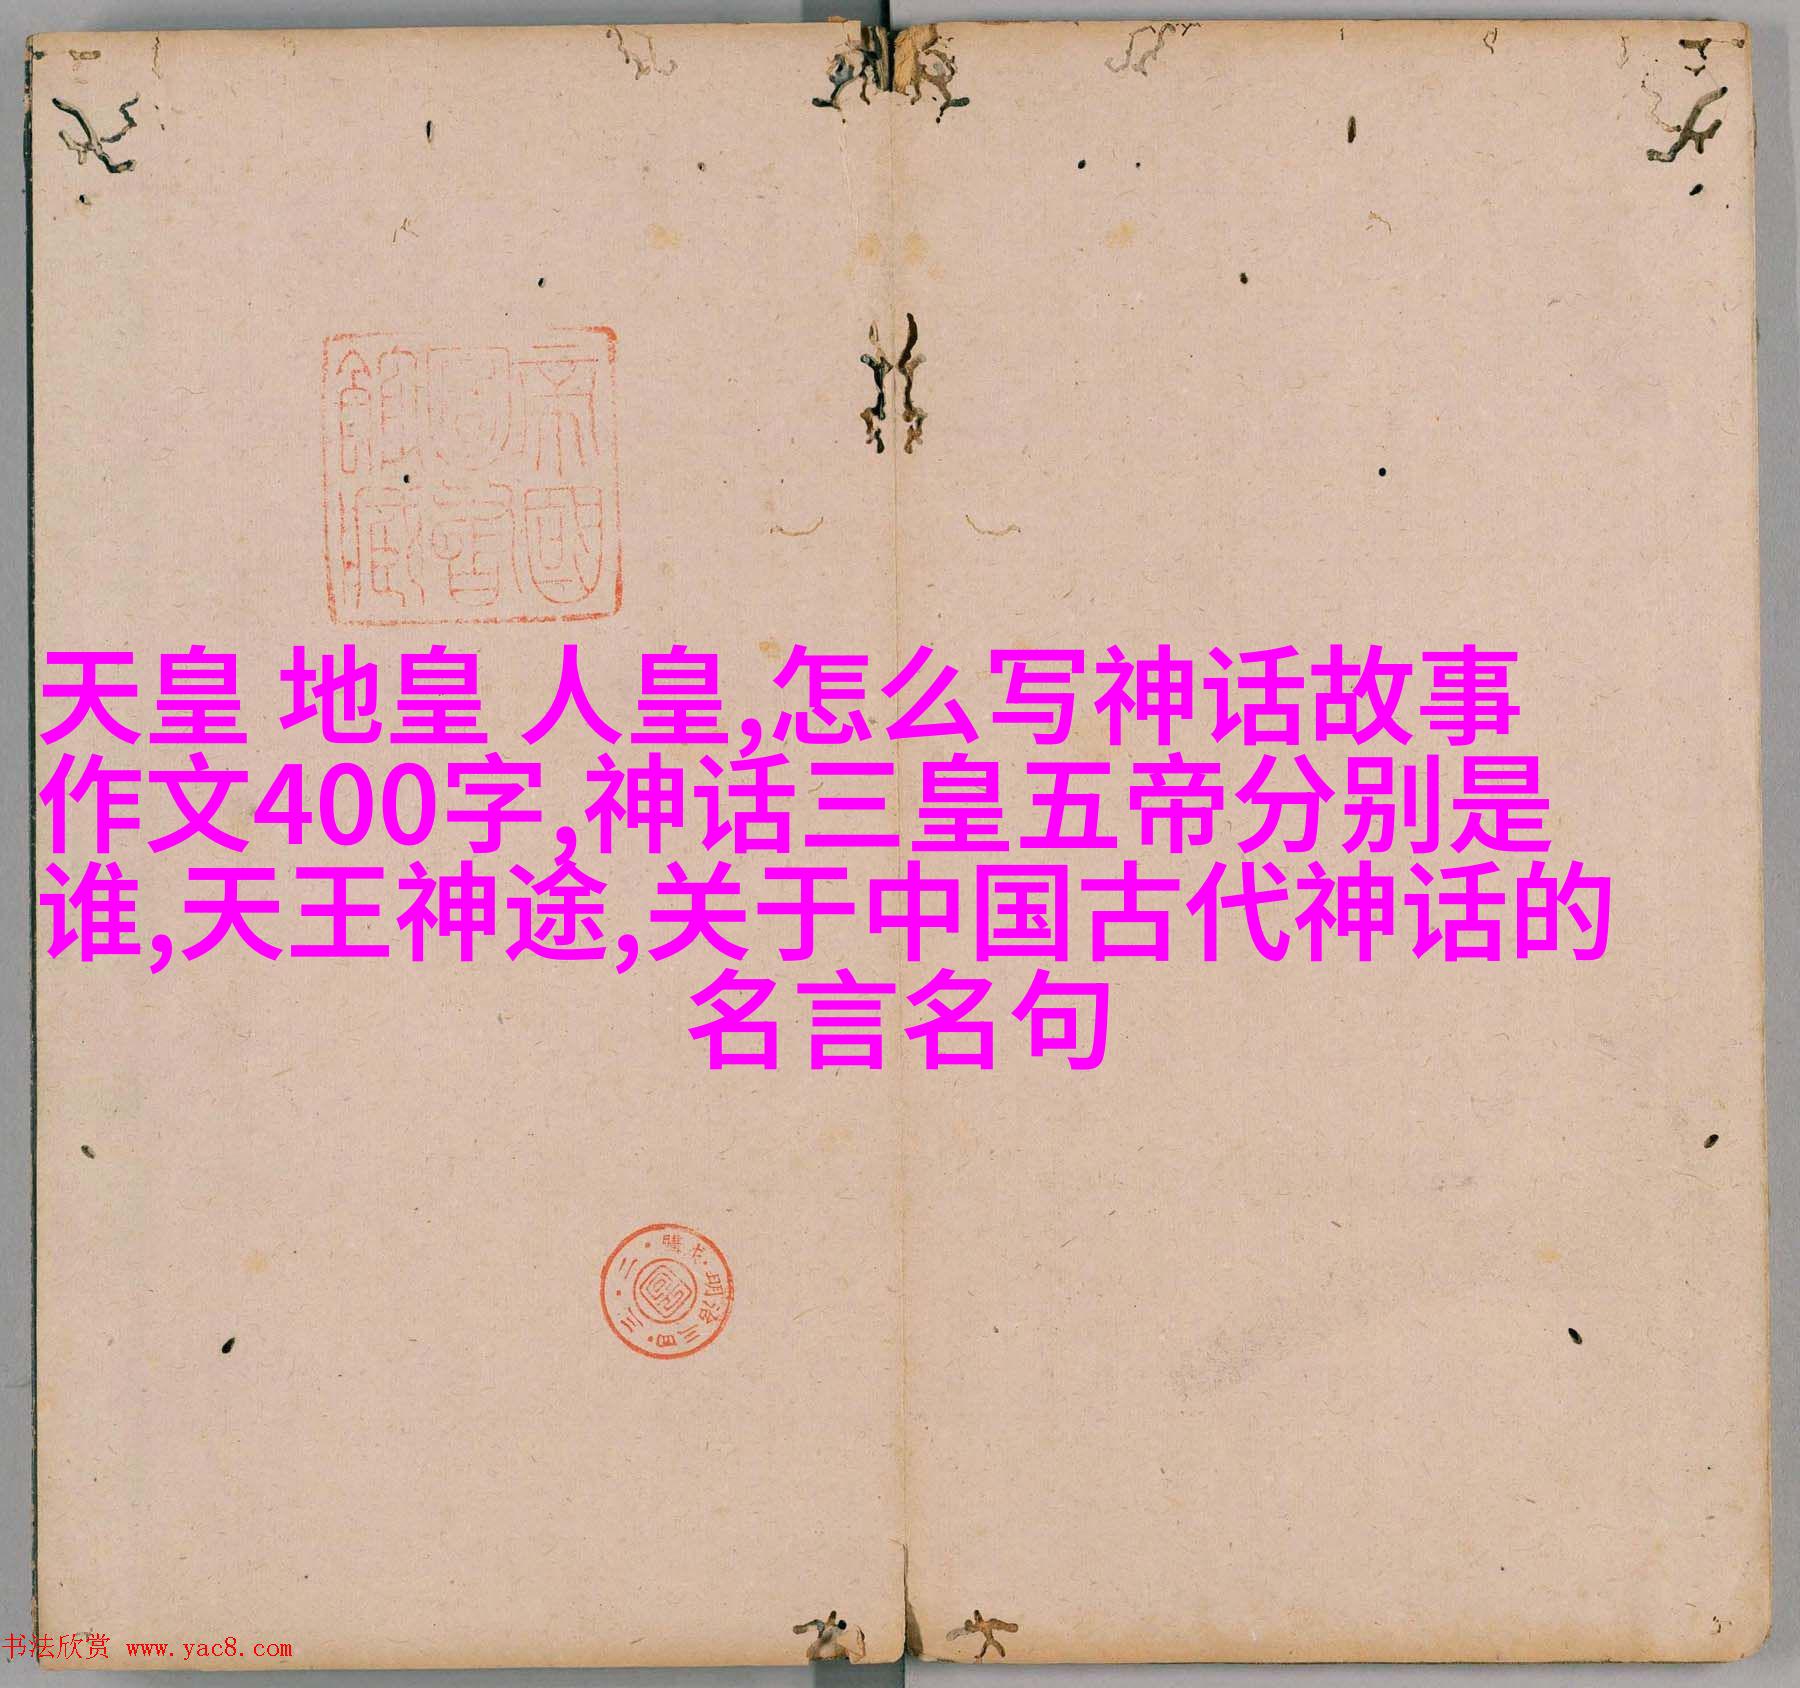 帝國
圖書
館藏
天皇 地皇 人皇,怎么写神话故事
作文400字,神话三皇五帝分别是
谁,天王神途,关于中国古代神话的
名言名句
明治三四・三・二・購求・
书法欣赏 www.yac8.com